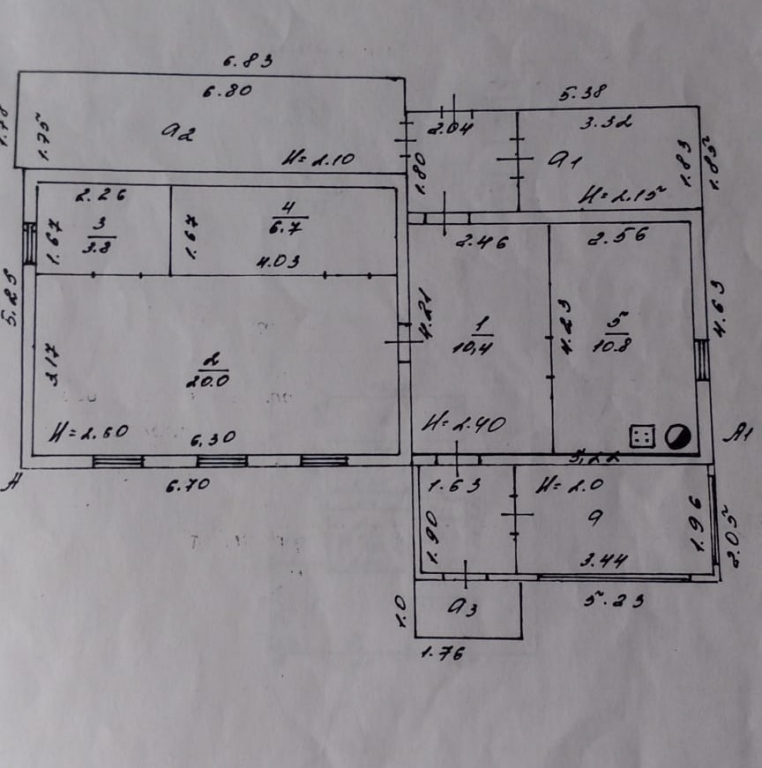 6.83
6.80
1.78
1.75
a2
H=2.10
5.38
2.04
3.32
1.80
a1
1.83
1.85
H=2.15
2.26
1.67
3
3.8
1.67
4
6.7
4.03
2.46
2.56
5.25
4.21
1
10,4
4.23
5
10.8
4.63
3.17
2
20.0
H=2.60
6,30
H=2.40
A
A1
6.70
5,22
1.63
H=2.0
1.90
a
1.96
2.05
3.44
1.0
a3
5.23
1.76